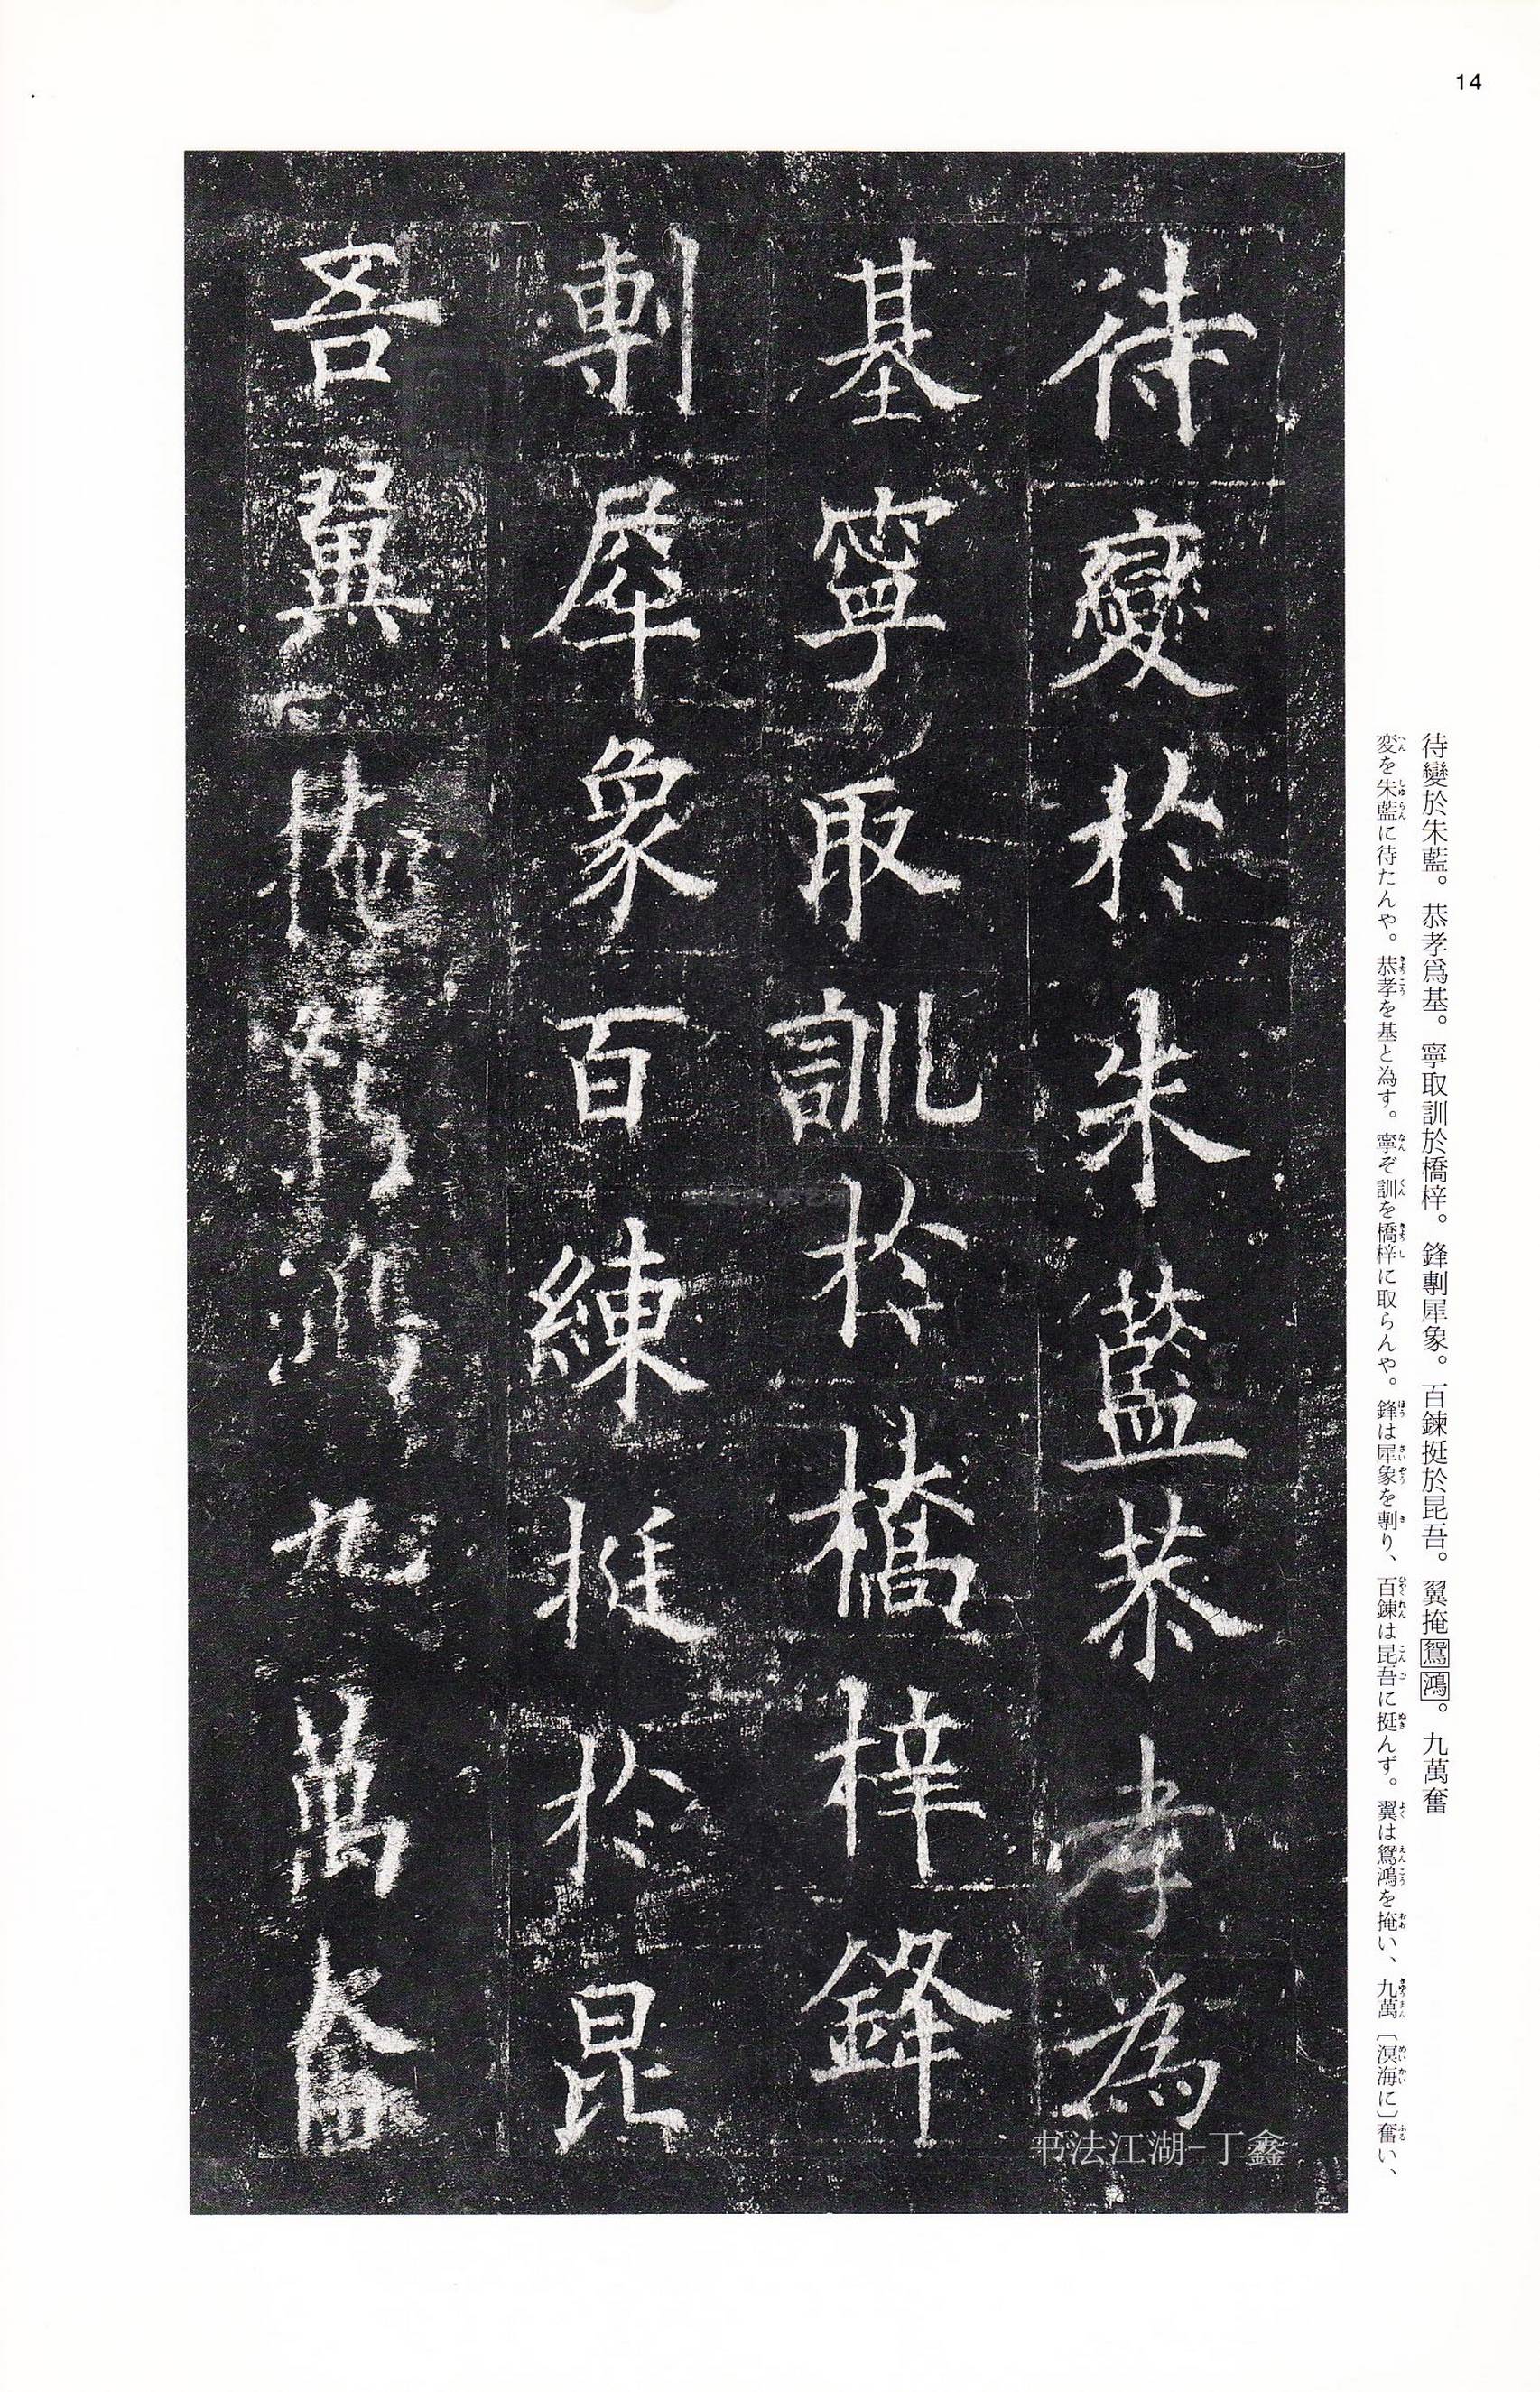 14
待變於朱藍。恭孝爲基。寧取訓於橋梓。鋒剸犀象。百鍊挺於昆吾。翼掩鴛鴻。九萬奮
変を朱藍に待たんや。恭孝を基と為す。寧ぞ訓を橋梓に取らんや。鋒は犀象を剸り、百錬は昆吾に挺んず。翼は鴛鴻を掩い、九萬〔溟海に〕奮い、
待變於朱藍恭孝為
基寧取訓於橋梓鋒
剸犀象百練挺於昆
吾翼掩鴛鴻九萬奮
书法江湖-丁鑫